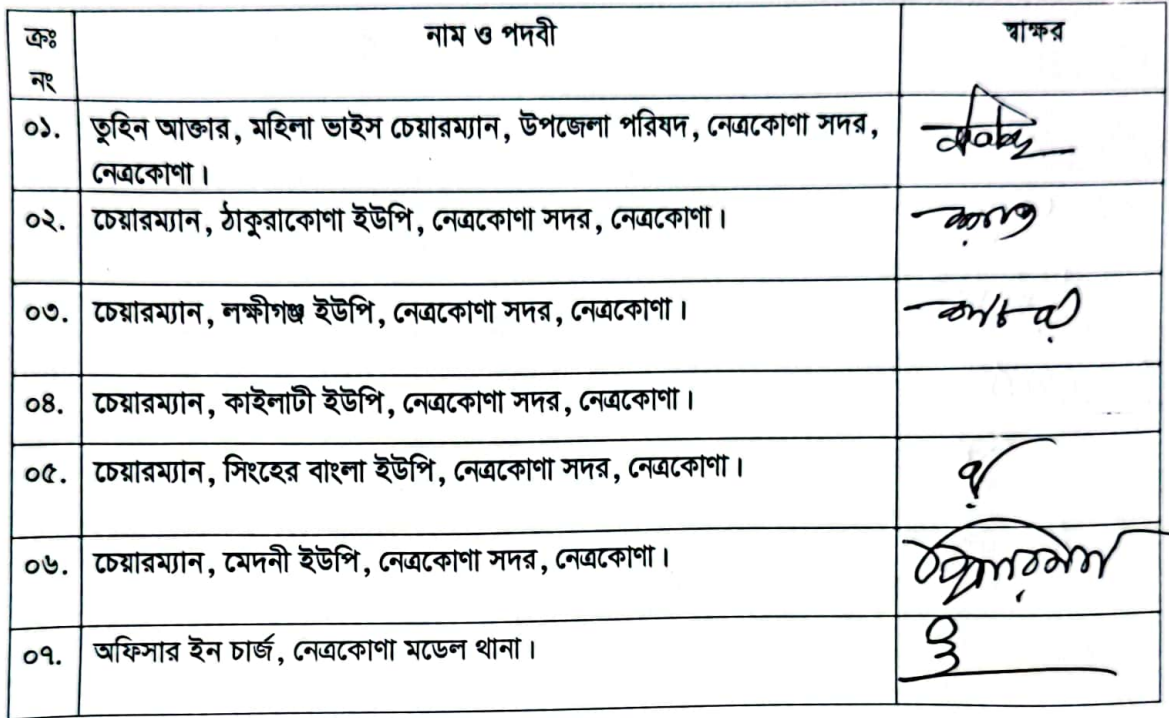 ক্রঃ নং নাম ও পদবী স্বাক্ষর
০১. তুহিন আক্তার, মহিলা ভাইস চেয়ারম্যান, উপজেলা পরিষদ, নেত্রকোণা সদর,
নেত্রকোণা।
০২. চেয়ারম্যান, ঠাকুরাকোণা ইউপি, নেত্রকোণা সদর, নেত্রকোণা।
০৩. চেয়ারম্যান, লক্ষীগঞ্জ ইউপি, নেত্রকোণা সদর, নেত্রকোণা।
০৪. চেয়ারম্যান, কাইলাটী ইউপি, নেত্রকোণা সদর, নেত্রকোণা।
০৫. চেয়ারম্যান, সিংহের বাংলা ইউপি, নেত্রকোণা সদর, নেত্রকোণা।
০৬. চেয়ারম্যান, মেদনী ইউপি, নেত্রকোণা সদর, নেত্রকোণা।
০৭. অফিসার ইন চার্জ, নেত্রকোণা মডেল থানা।